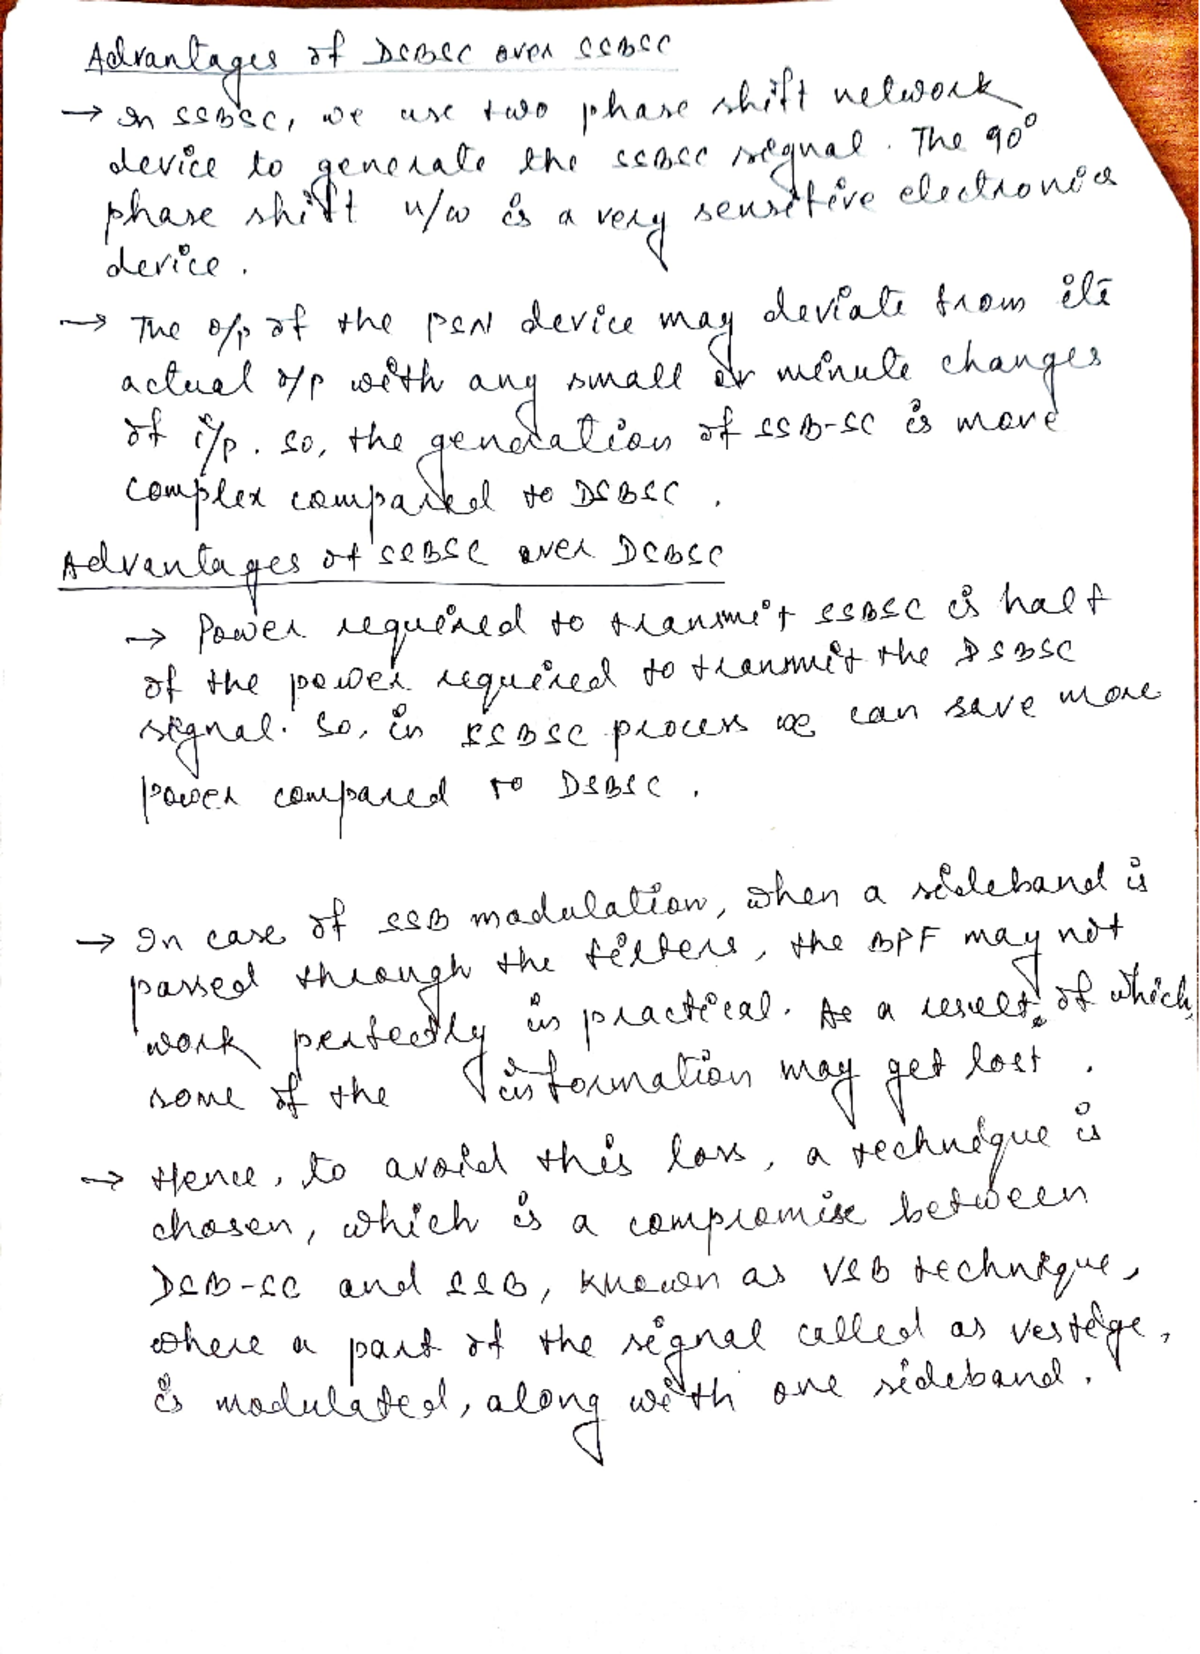 Advantages of DSBSC over SSBSC
→ In SSBSC, we use two phase shift network
device to generate the SSBSC signal. The 90°
phase shift n/w is a very sensitive electronics
device.
→ The o/p of the PSN device may deviate from its
actual o/p with any small or minute changes
of i/p. So, the generation of SSB-SC is more
complex compared to DSBSC.
Advantages of SSBSC over DSBSC
→ Power required to transmit SSBSC is half
of the power required to transmit the DSBSC
signal. So, in SSBSC process we can save more
power compared to DSBSC.
→ In case of SSB modulation, when a sideband is
passed through the filters, the BPF may not
work perfectly in practical. As a result of which,
some of the information may get lost.
→ Hence, to avoid this loss, a technique is
chosen, which is a compromise between
DSB-SC and SSB, known as VSB technique,
where a part of the signal called as vestige,
is modulated, along with one sideband.